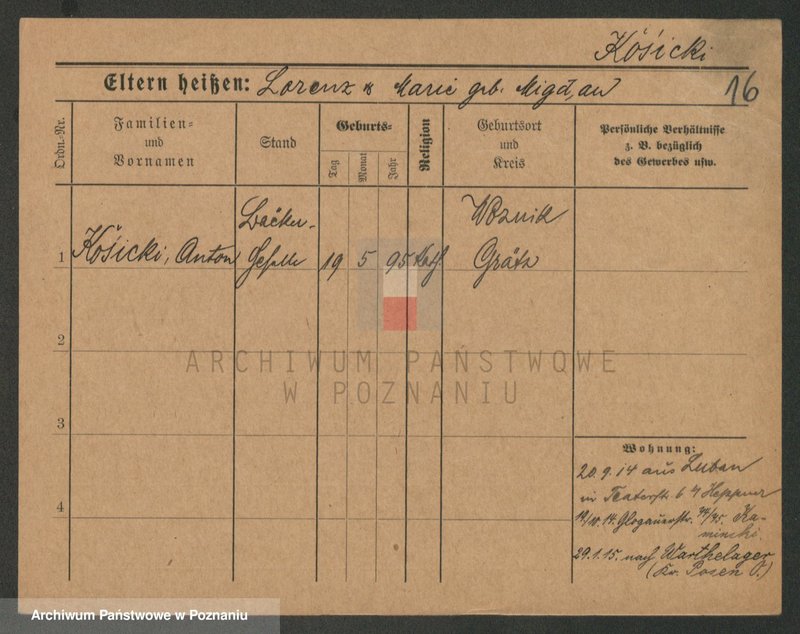 Kośicki
Eltern heißen: Lorenz u Marie geb. Migd, au
16
Ordn.-Nr.
Familien-
und
Vornamen
Stand
Geburts-
Tag
Monat
Jahr
Religion
Geburtsort
und
Kreis
Persönliche Verhältnisse
z. B. bezüglich
des Gewerbes usw.
1
Kośicki, Anton
Bäcker-
Geselle
19
5
95
Kath
Woznik
Grätz
2
ARCHIWUM PAŃSTWOWE
W POZNANIU
3
4
Wohnung:
20.9.14 aus Luban
in Teaterstr. 6 Heppner
19/10.14. Glogauerstr. 74/75. Ka-
minski.
29.1.15. nach Warthelager
(Kr. Posen O.)
Archiwum Państwowe w Poznaniu